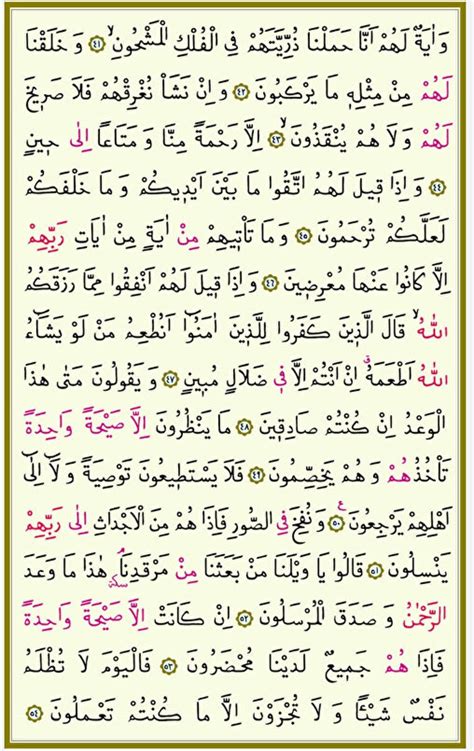 وَاٰيَةٌ لَهُمْ اَنَّا حَمَلْنَا ذُرِّيَّتَهُمْ فِي الْفُلْكِ الْمَشْحُونِۙ ﴿٤١﴾ وَخَلَقْنَا
لَهُمْ مِنْ مِثْلِهٖ مَا يَرْكَبُونَ ﴿٤٢﴾ وَاِنْ نَشَأْ نُغْرِقْهُمْ فَلَا صَرٖيخَ
لَهُمْ وَلَا هُمْ يُنْقَذُونَۙ ﴿٤٣﴾ اِلَّا رَحْمَةً مِنَّا وَمَتَاعًا اِلٰى حٖينٍ
﴿٤٤﴾ وَاِذَا قٖيلَ لَهُمُ اتَّقُوا مَا بَيْنَ اَيْدٖيكُمْ وَمَا خَلْفَكُمْ
لَعَلَّكُمْ تُرْحَمُونَ ﴿٤٥﴾ وَمَا تَأْتٖيهِمْ مِنْ اٰيَةٍ مِنْ اٰيَاتِ رَبِّهِمْ
اِلَّا كَانُوا عَنْهَا مُعْرِضٖينَ ﴿٤٦﴾ وَاِذَا قٖيلَ لَهُمْ اَنْفِقُوا مِمَّا رَزَقَكُمُ
اللّٰهُۙ قَالَ الَّذٖينَ كَفَرُوا لِلَّذٖينَ اٰمَنُٓوا اَنُطْعِمُ مَنْ لَوْ يَشَٓاءُ
اللّٰهُ اَطْعَمَهُۗ اِنْ اَنْتُمْ اِلَّا فٖي ضَلَالٍ مُبٖينٍ ﴿٤٧﴾ وَيَقُولُونَ مَتٰى هٰذَا
الْوَعْدُ اِنْ كُنْتُمْ صَادِقٖينَ ﴿٤٨﴾ مَا يَنْظُرُونَ اِلَّا صَيْحَةً وَاحِدَةً
تَأْخُذُهُمْ وَهُمْ يَخِصِّمُونَ ﴿٤٩﴾ فَلَا يَسْتَطٖيعُونَ تَوْصِيَةً وَلَٓا اِلٰٓى
اَهْلِهِمْ يَرْجِعُونَ ﴿٥٠﴾ وَنُفِخَ فِي الصُّورِ فَاِذَا هُمْ مِنَ الْاَجْدَاثِ اِلٰى رَبِّهِمْ
يَنْسِلُونَ ﴿٥١﴾ قَالُوا يَا وَيْلَنَا مَنْ بَعَثَنَا مِنْ مَرْقَدِنَا هٰذَا مَا وَعَدَ
الرَّحْمٰنُ وَصَدَقَ الْمُرْسَلُونَ ﴿٥٢﴾ اِنْ كَانَتْ اِلَّا صَيْحَةً وَاحِدَةً
فَاِذَا هُمْ جَمٖيعٌ لَدَيْنَا مُحْضَرُونَ ﴿٥٣﴾ فَالْيَوْمَ لَا تُظْلَمُ
نَفْسٌ شَيْـًٔا وَلَا تُجْزَوْنَ اِلَّا مَا كُنْتُمْ تَعْمَلُونَ ﴿٥٤﴾